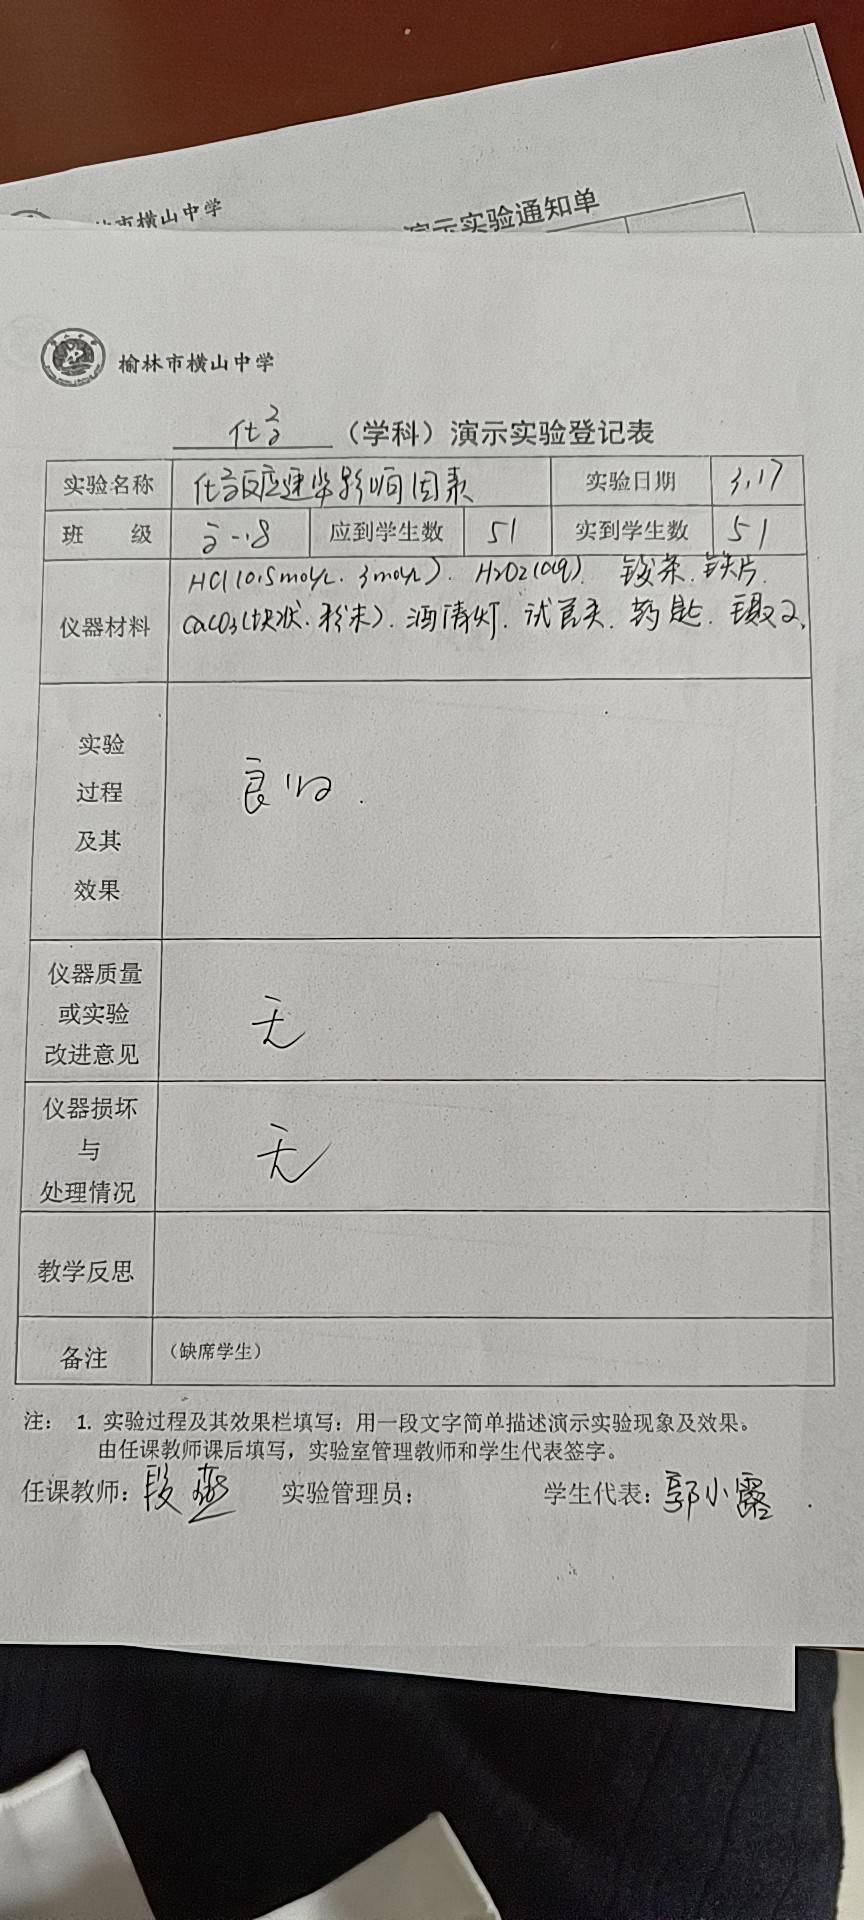 市横山中学
演示实验通知单
榆林市横山中学
化学（学科）演示实验登记表
实验名称 化学反应速率影响因素 实验日期 3.17
班 级 应到学生数 51 实到学生数 51
HCl(0.5mol/L. 3mol/L). H2O2(aq). 镁条. 铁片.
仪器材料 CaCO3(块状.粉末). 酒精灯. 试管夹. 药匙. 镊子.
实验
过程
及其
效果
良好.
仪器质量
或实验
改进意见
无
仪器损坏
与
处理情况
无
教学反思
备注 （缺席学生）
注： 1. 实验过程及其效果栏填写：用一段文字简单描述演示实验现象及效果。
由任课教师课后填写，实验室管理教师和学生代表签字。
任课教师：段燕 实验管理员： 学生代表：郭小露